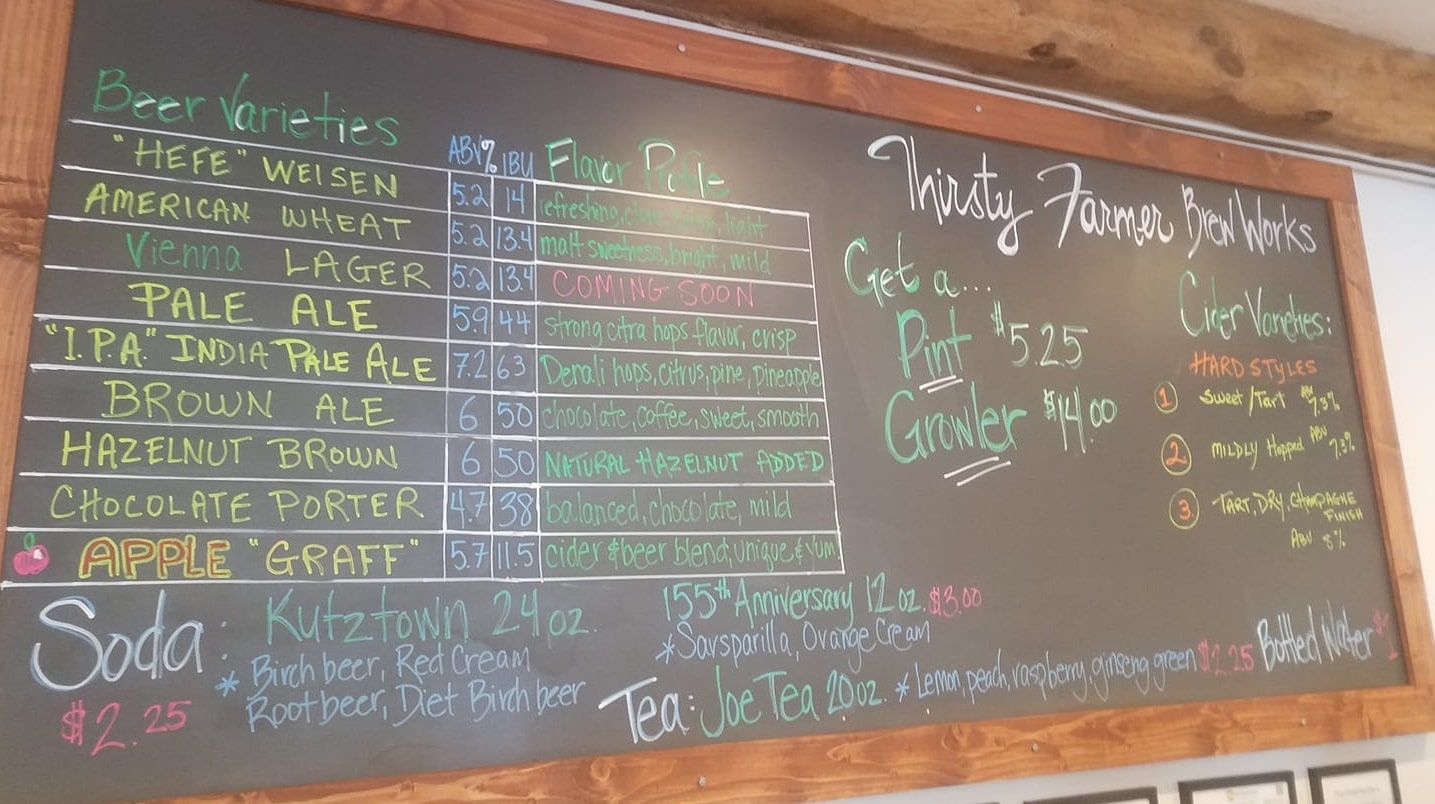 Beer Varieties ABV% IBU Flavor Profile
"HEFE" WEISEN 5.2 14 refreshing, light
AMERICAN WHEAT 5.2 13.4 malt sweetness, bright, mild
Vienna LAGER 5.2 13.4 COMING SOON
PALE ALE 5.9 44 strong citra hops flavor, crisp
"I.P.A." INDIA PALE ALE 7.2 63 Denali hops, citrus, pine, pineapple
BROWN ALE 6 50 chocolate, coffee, sweet, smooth
HAZELNUT BROWN 6 50 NATURAL HAZELNUT ADDED
CHOCOLATE PORTER 4.7 38 balanced, chocolate, mild
APPLE "GRAFF" 5.7 11.5 cider & beer blend, unique, & yum
Thirsty Farmer Brew Works
Get a...
Pint $5.25
Growler $14.00
Cider Varieties:
HARD STYLES
1. Sweet/Tart ABV 7.3%
2. MILDLY Hopped ABV 7.3%
3. TART, DRY, CHAMPAGNE
FINISH
ABV 8%
Soda: Kutztown 24 oz.
* Birch beer, Red Cream
Root beer, Diet Birch beer
$2.25
155th Anniversary 12 oz. $3.00
* Sarsparilla, Orange Cream
Tea: Joe Tea 20oz. * Lemon, peach, raspberry, ginseng green $2.25
Bottled Water $1